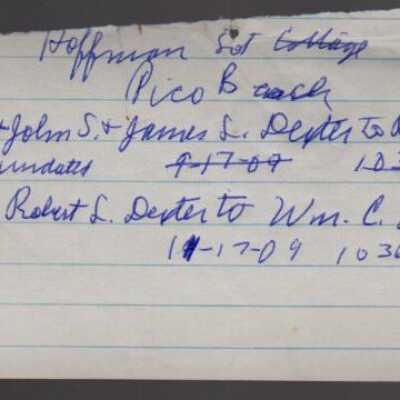 Hoffman Lot Cottage
Pico B each
+ John S. + James L. Dexter to R
undated 9-17-09 103
Robert L. Dexter to Wm. C.
11-17-09 1036